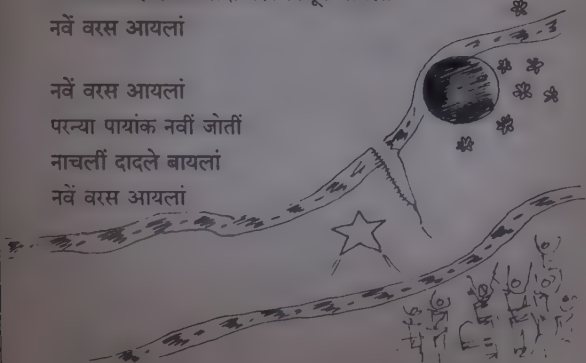 नवें वरस आयलां
नवें वरस आयलां
परन्या पायांक नवीं जोतीं
नाचलीं दादले बायलां
नवें वरस आयलां